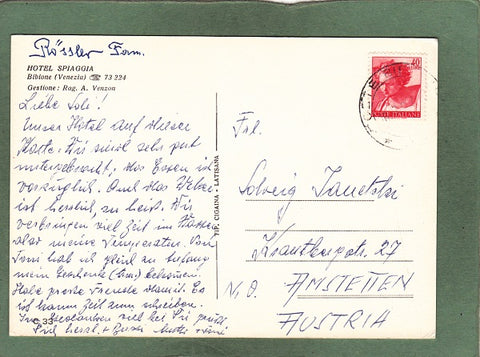 Rössler Fam.
HOTEL SPIAGGIA
Bibione (Venezia) ☎ 73 224
Gestione: Rag. A. Venzon
Liebe Soli!
Unser Hotel auf dieser
Karte. Wir sind sehr gut
untergebracht, das Essen ist
vorzüglich. Und das Wetter
ist herrlich, zu heiß. Wir
verbringen viel Zeit im Wasser
oder meine Von
habe ich gleich zu
mein Geschenk bekommen.
Habe große Freude damit. Es
ist kaum Zeit zum schreiben.
In Gedanken viel bei Dir
C 33
Dich herzl.
TIP. CIGAINA - LATISANA
40
POSTE ITALIANE
Frl.
Solveig
27
N. Ö. AMSTETTEN
AUSTRIA